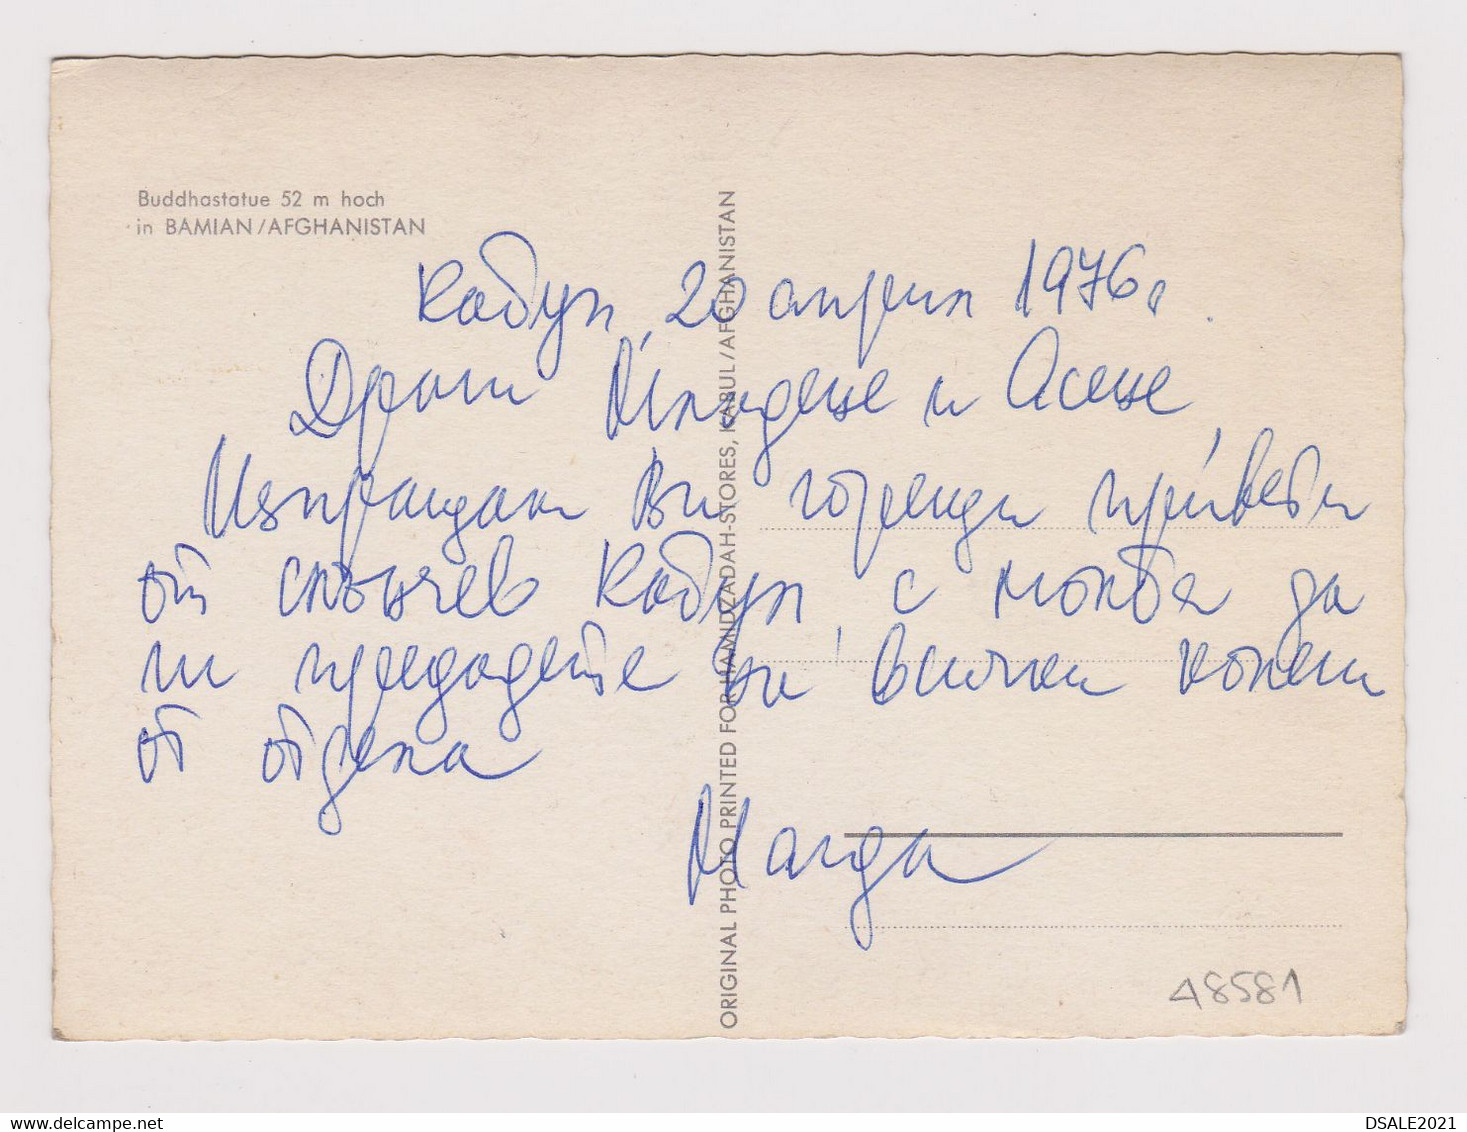 Buddhastatue 52 m hoch
in BAMIAN/AFGHANISTAN
ORIGINAL PHOTO PRINTED FOR HAMIDZADAH-STORES, KABUL/AFGHANISTAN
Кабул, 20 април 1976г.
Драги Младене и Асене
Изпращам Ви горещи привети
от слънчев Кабул, с молба да
ги предадете на всички колеги
от отдела
Магда
A8581
DSALE2021